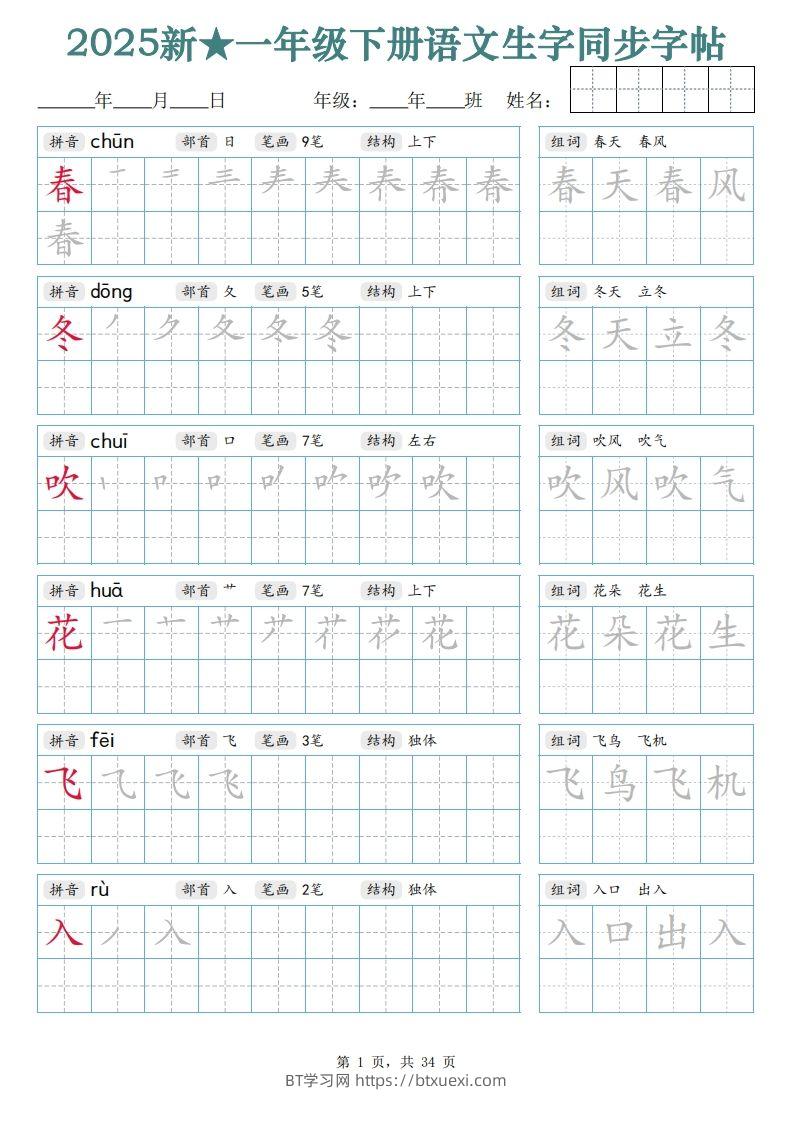 2025新★一年级下册语文生字同步字帖
______年____月____日 年级：____年____班 姓名：
拼音 chūn 部首 日 笔画 9笔 结构 上下 组词 春天 春风
春 春 春天春风
春
拼音 dōng 部首 夂 笔画 5笔 结构 上下 组词 冬天 立冬
冬 丿 夂 冬 冬 冬天立冬
拼音 chuī 部首 口 笔画 7笔 结构 左右 组词 吹风 吹气
吹 丨 口 吹 吹风吹气
拼音 huā 部首 艹 笔画 7笔 结构 上下 组词 花朵 花生
花 一 艹 花 花朵花生
拼音 fēi 部首 飞 笔画 3笔 结构 独体 组词 飞鸟 飞机
飞 飞 飞鸟飞机
拼音 rù 部首 入 笔画 2笔 结构 独体 组词 入口 出入
入 丿 入 入口出入
第 1 页，共 34 页
BT学习网 https://btxuexi.com